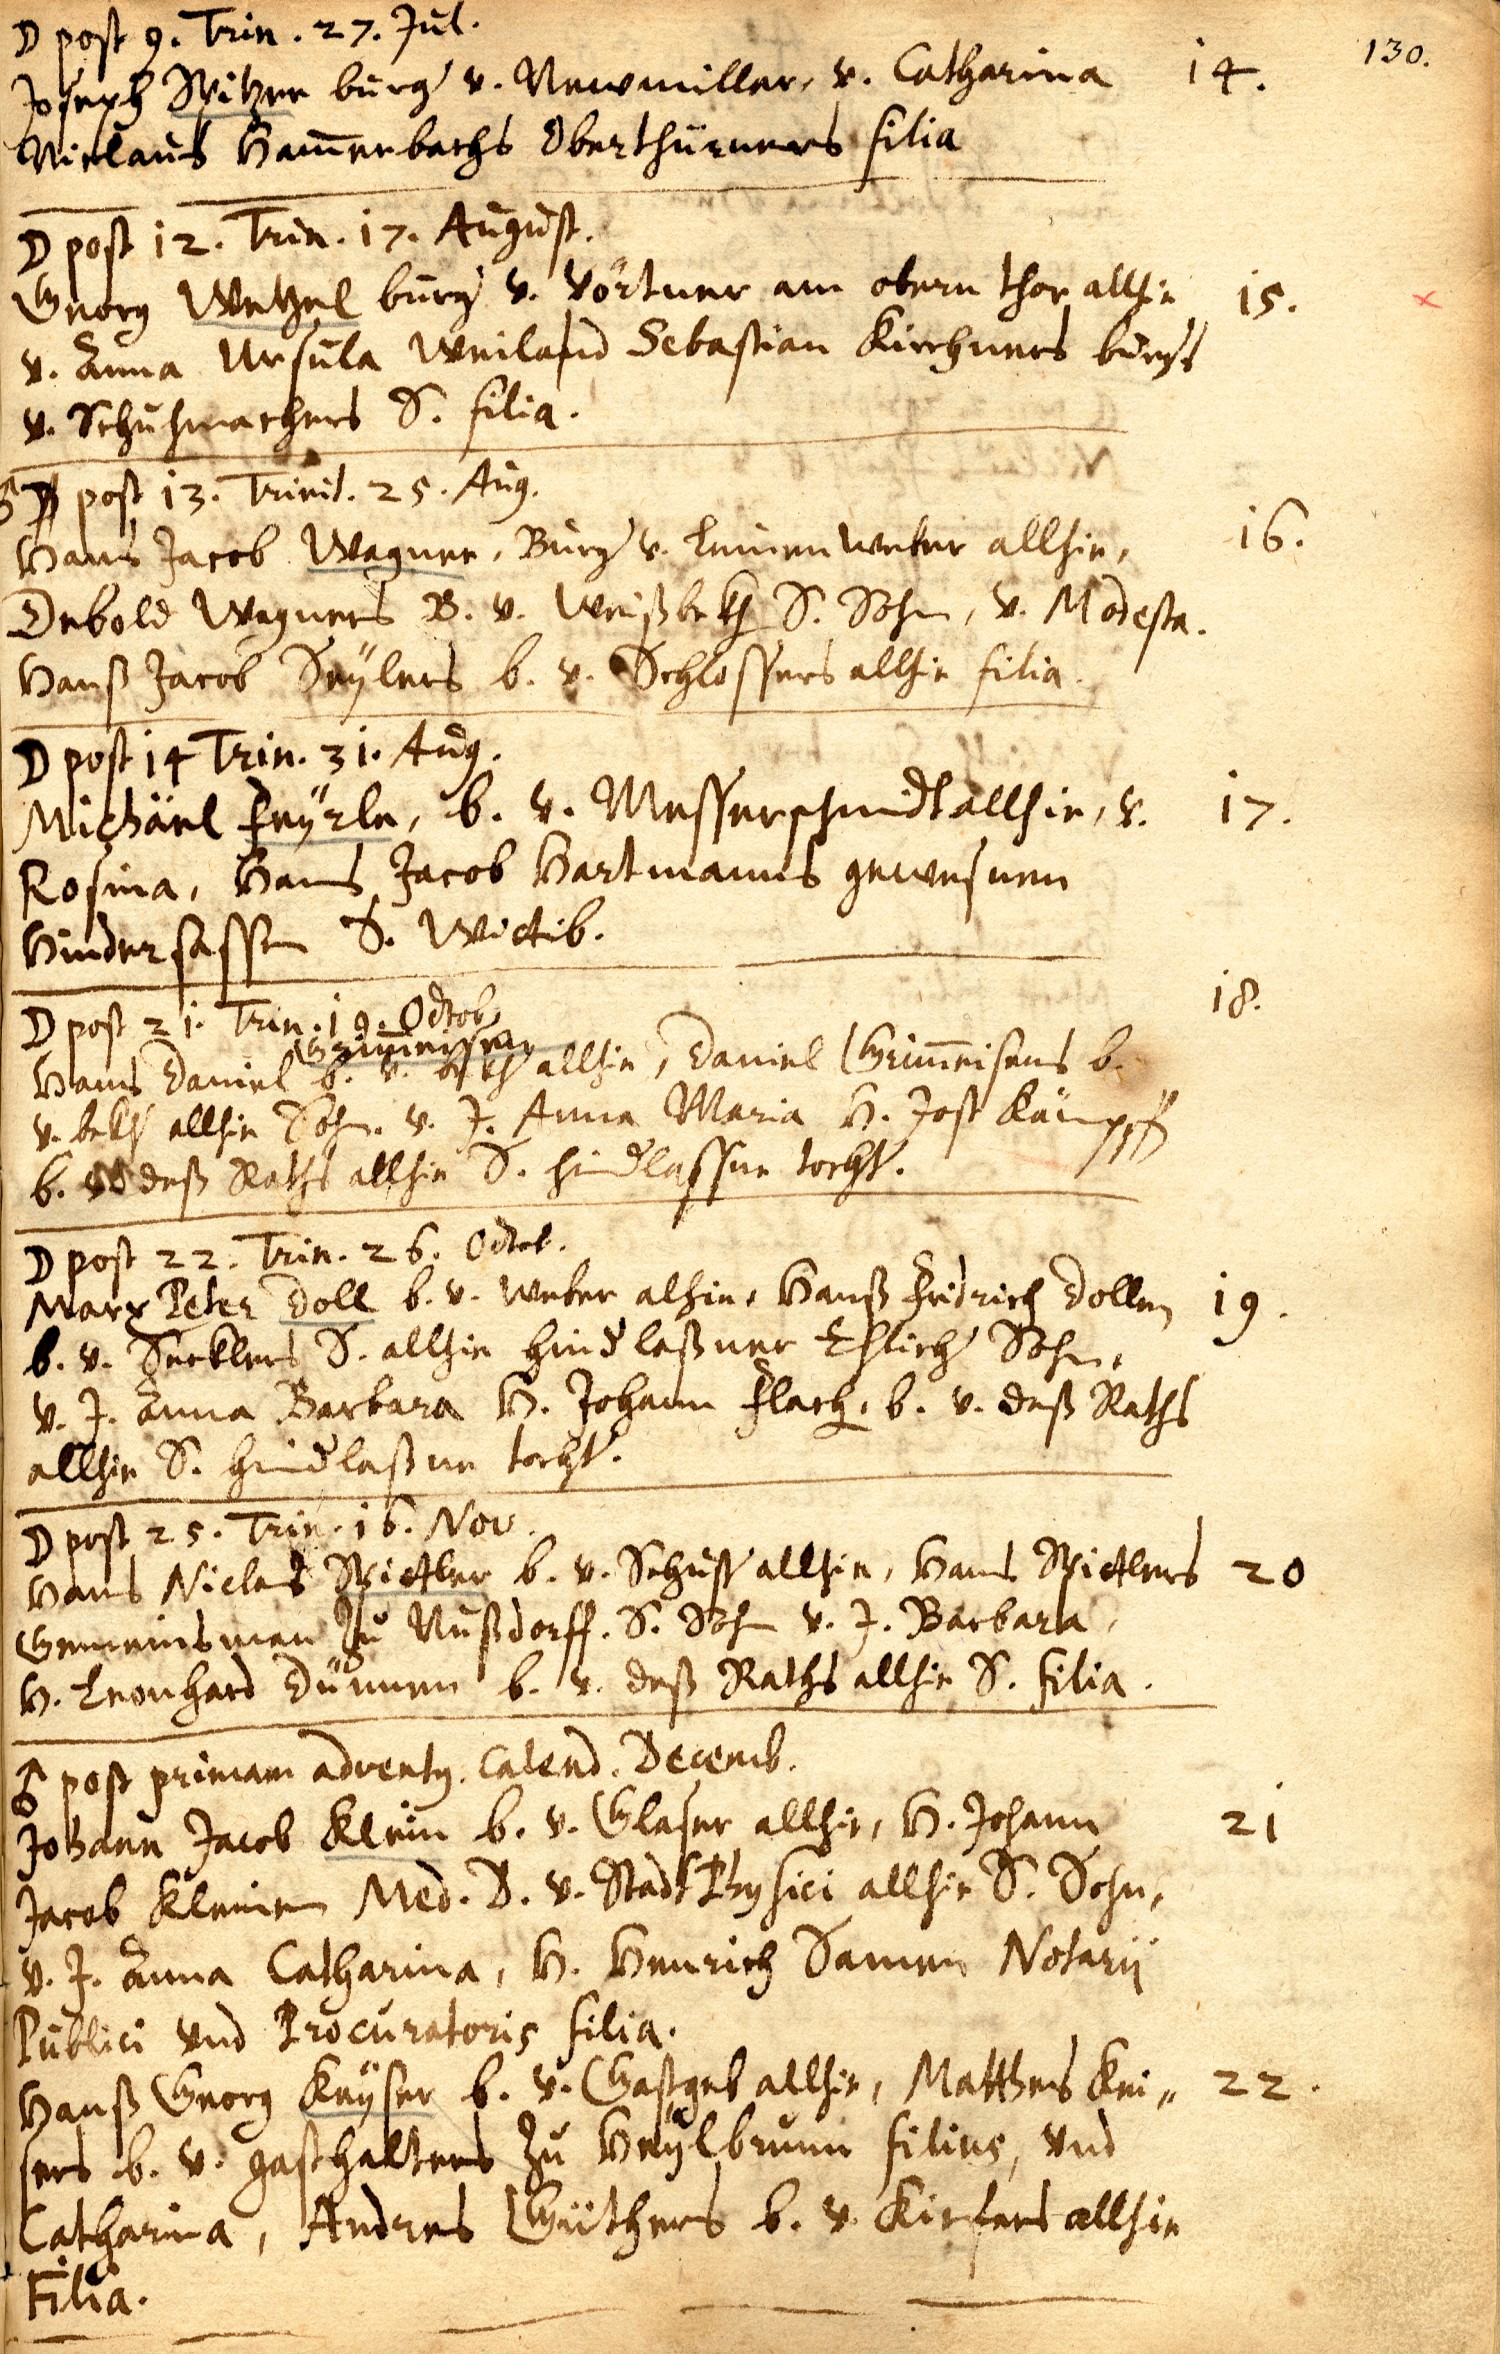 130.
D post 9. Trin. 27. Jul.
Joseph Spitzer burg' v. Newmiller, v. Catharina 14.
Niclaus Ham̄erbachs Oberthürners filia
D post 12. Trin. 17. August.
Georg Wetzel burg' v. Pörtner am obern thor allhie 15.
v. Anna Ursula Weiland Sebastian Kirchners burgs
v. Schuhmachers S. filia.
post 13. Trinit. 25. Aug.
Hans Jacob Wagner, Burg' v. Leinenweber allhie, 16.
Debold Wagners B. v. Weißbekh S. Sohn, v. Modesta.
Hanß Jacob Seÿlers b. v. Schlossers allhie filia.
D post 14 Trin. 31. Aug.
Michäel Feÿrle, b. v. Messerschmidt allhie, v. 17.
Rosina, Hans Jacob Hartmanns gewesnen
Hindersassen S. Wictib.
18.
D post 21. Trin. 19. Octob.
Grim̄eisen
Hans Daniel b. v. bekh allhie, Daniel Grim̄eisens b.
v. bekh allhie Sohn. v. J. Anna Maria H. Jost Kämpff
b. deß Raths allhie S. hind'lassne tocht'.
D post 22. Trin. 26. Octob.
Marx Peter Doll b. v. Weber alhie, Hanß Fridrich Dollen 19.
b. v. Secklers S. allhie hind'laßner Ehlich' Sohn,
v. J. Anna Barbara H. Johann Flach, b. v. deß Raths
allhie S. hind'laßne tocht'.
D post 25. Trin. 16. Nov.
Hans Niclas Spictler b. v. allhie, Hans Spictlers 20
Gemeinsman zu Nußdorff. S. Sohn v. J. Barbara,
H. Leonhard Dünnen b. v. deß Raths allhie S. filia.
♂ post primam adventq. Calend. Decemb.
Johann Jacob Klein b. v. Glaser allhie, H. Johann 21
Jacob Kleinen Med. D. v. Stadt Physici allhie S. Sohn,
v. J. Anna Catharina, H. Henrich Samen Notarij
Publici und Procuratoris filia.
Hanß Georg Keÿser b. v. Gastgeb allhie, Matthes Kei= 22.
sers b. v. gasthalters zu Heÿlbrunn filius, und
Catharina, Andres Güthers b. v. Kiefers allhie
Filia.